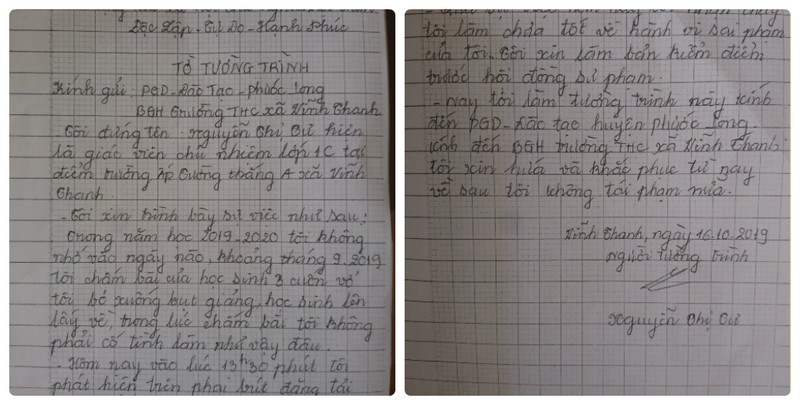 Độc Lập - Tự Do - Hạnh Phúc
TỜ TƯỜNG TRÌNH
Kính gửi: PGD - Đào Tạo - Phước Long
BGH Trường THC xã Vĩnh Thanh
Tôi đứng tên: Nguyễn Thị Cư hiện
là giáo viên chủ nhiệm lớp 1C tại
điểm trường ấp Tường Thắng A xã Vĩnh
Thanh.
- Tôi xin trình bày sự việc như sau:
Trong năm học 2019-2020 tôi không
nhớ vào ngày nào, khoảng tháng 9.2019
tôi chấm bài của học sinh 3 cuốn vở
tôi bỏ xuống bục giảng học sinh lên
lấy về, trong lúc chấm bài tôi không
phải cố tình làm như vậy đâu.
- Hôm nay vào lúc 13h30 phút tôi
phát hiện trên phai búc đăng tải
tôi làm chưa tốt về hành vi sai phạm
của tôi. Tôi xin làm bản kiểm điểm
trước hội đồng sư phạm.
- Nay tôi làm tường trình này kính
đến PGD - Đào tạo huyện Phước Long.
kính đến BGH trường THC xã Vĩnh Thanh
tôi xin hứa và khắc phục từ nay
về sau tôi không tái phạm nữa.
Vĩnh Thanh, ngày 16.10.2019
Người tường trình
Nguyễn Thị Cư